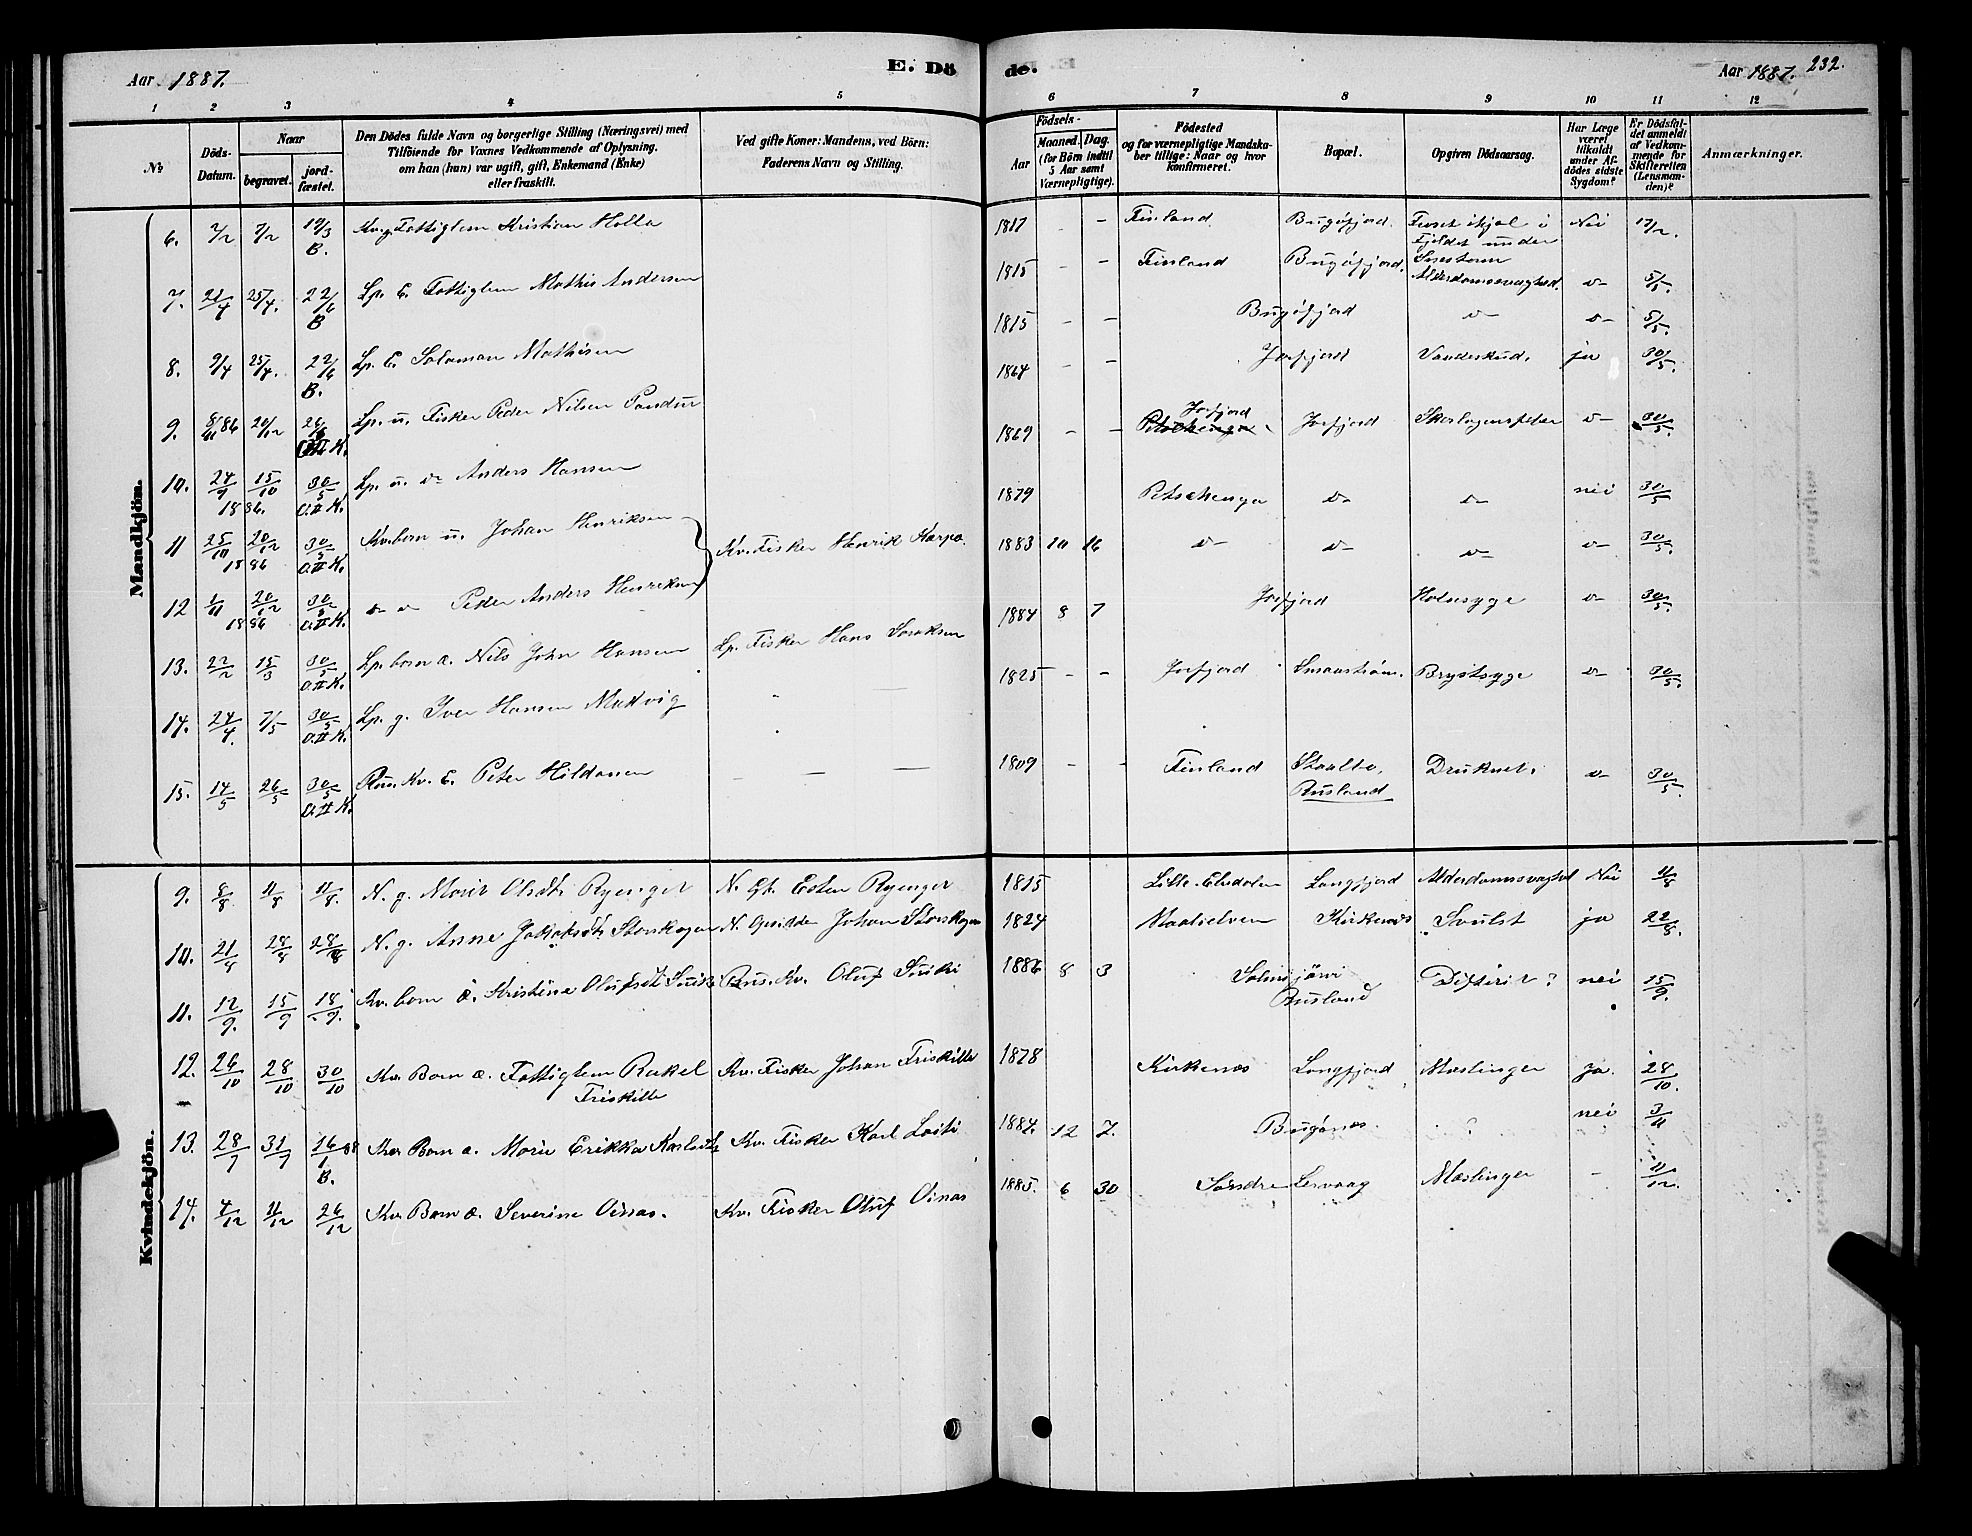 Aar 1887.
E. Dö
de.
Aar 1887. 232.
1 2 3 4 5
6 7 8 9 10 11 12
№
Döds-Datum.
Naar
begravet.
jord-fæstet.
Den Dödes fulde Navn og borgerlige Stilling (Næringsvei) med
Tilföiende for Voxnes Vedkommende af Oplysning,
om han (hun) var ugift, gift, Enkemand (Enke)
eller fraskilt.
Ved gifte Koner: Mandens, ved Börn:
Faderens Navn og Stilling.
Födsels-
Aar
Maaned. Dag.
(for Börn indtil
5 Aar samt
Værnepligtige).
Födested
og for værnepligtige Mandska-
ber tillige: Naar og hvor
konfirmeret.
Bopæl.
Opgiven Dödsaarsag.
Har Læge
været
tilkaldt
under Af-
dödes sidste
Sygdom?
Er Dödsfal-
det anmeldt
af Vedkom-
mende for
Skifteretten
(Lensman-
den)?
Anmærkninger.
Mandkjön.
6. 7/2 7/2 19/3 B. Kv. g. Fattiglem Kristian Holla 1817 - - Finland. Bugöfjord. Frost ihjel i Fjeldet under Snestorm Nei 17/2.
7. 21/4 25/4. 22/6 B Lp. E. Fattiglem Mathis Andersen 1815 - - Finland Bugöfjord. Alderdomssvaghed. v- 5/5.
8. 9/4 25/4. 22/6 B. Lp. E. Salamon Mathisen 1815 - - Bugöfjord v- v- 5/5.
9. 8/11 86 20/12 26/5 O.II K. Lp. u. Fisker Peder Nilsen 1864 - - Jarfjord Vandskud. ja 30/5.
10. 24/9 15/10 1886. 30/5 O.II K. Lp. u. v- Anders Hansen 1869 - - Jarfjord Petschenga Jarfjord Skarlagensfeber v- 30/5.
11 25/10 20/12 1886 30/5 O.II K. Kv. born u. Johan Henriksen Kv. Fisker Henrik Karpa. 1879 Petschenga v- v- nei 30/5
12 1/11 20/12 1886 30/5 O.II K. v- v- Peder Anders Henriksen 1883 10 16 v- v- v- v- 30/5.
13. 22/2 15/3 30/5 O.II K. Lp. born æ. Nils John Hansen Lp. Fisker Hans Isaksen 1884 8 7 Jarfjord Halssyge v- 30/5.
14. 24/4. 7/5 30/5 O.II K. Lp. g. Iver Hansen Makvig 1825 - - Jarfjord Smaaström. Brystsyge v- 30/5.
15. 14/5 26/5 30/5 O.II K. Rus. Kv. E. Peter Hildonen - - - 1809 - - Finland Rusland Druknet. v- 30/5.
Kvindekjön.
9. 8/8. 11/8 11/8. N. g. Marit Olsdtr Ryenget N. Esten Ryenget 1815 Lille-Elvdalen Langfjord Alderdomssvaghed Nei 11/8
10. 21/8 28/8 28/8 N. g. Anne Jakobsdtr. Storskogen N. Johan Storskogen 1824 Maalselven Kirkenæs Svulst ja 22/8.
11. 12/9. 15/9 18/9. Kv. born æ. Kristine Olufsdt. Suiki Rus. Kv. Oluf Suiki 1886 8 3 Salmijärvi Rusland Difterit? nei 15/9.
12. 26/10 28/10 30/10 Kv. Barn æ. Fattiglem Rakel Friskille Kv. Fisker Johan Friskille 1878 Kirkenæs Langfjord Mæslinger ja. 28/10.
13. 28/7 31/7 16/1 88 B. Kv. Barn æ. Marie Erikka Karlsdtr Kv. Fisker Karl Laiti 1884. 12 7. Bugönæs. ? nei 3/11
14. 4/12 11/12 26/12 Kv. Barn æ. Severine Oinas. Kv. Fisker Oluf Oinas 1885. 6 30 Söndre Leirvaag Mæslinger - 11/12.